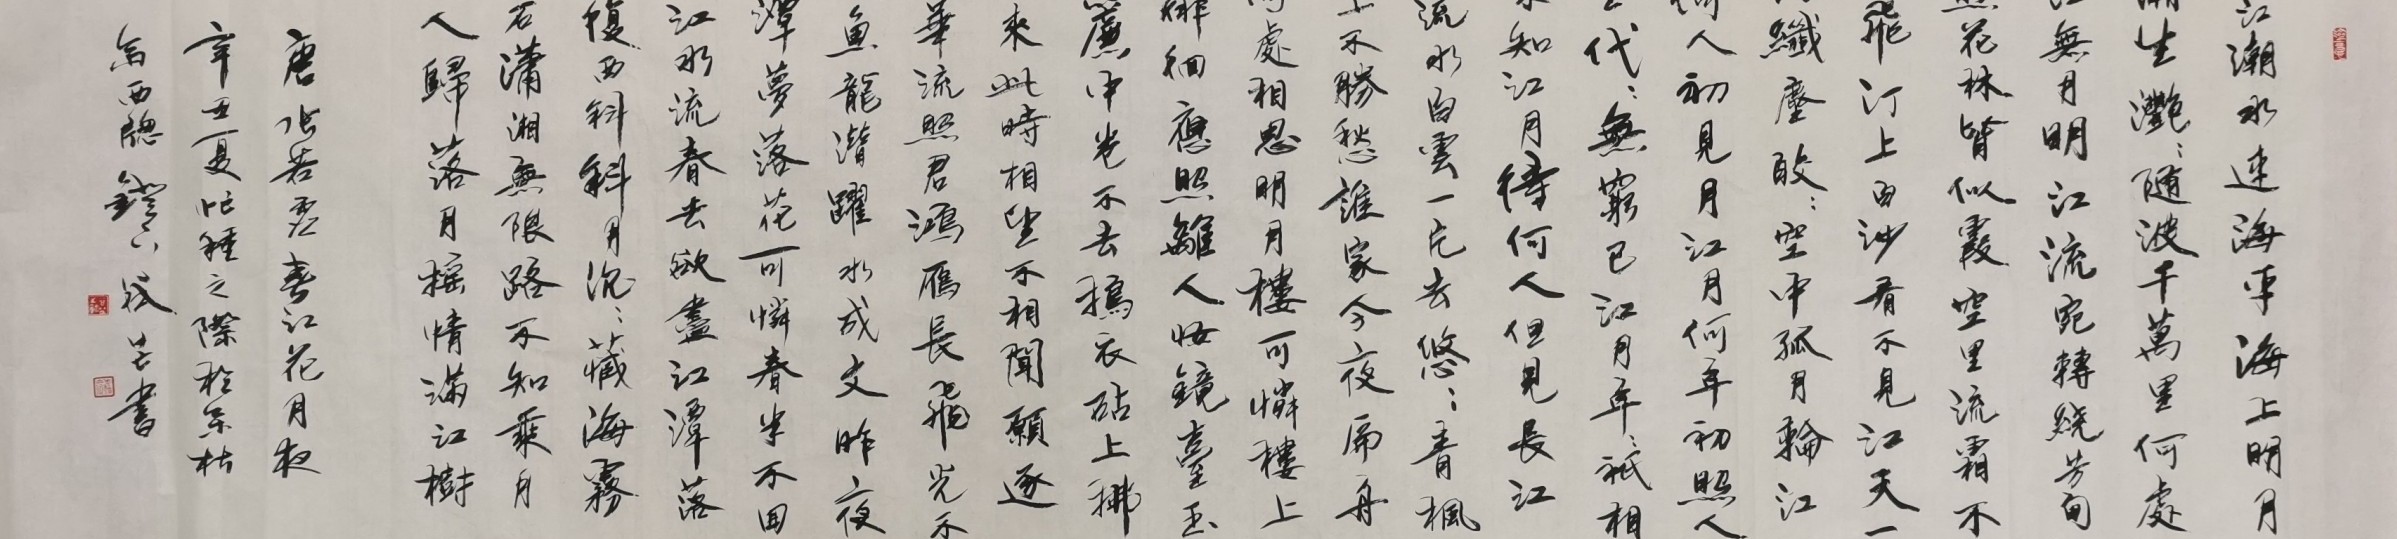 江潮水連海平海上明月
潮生灔〻隨波千萬里何處
江無月明江流宛轉繞芳甸
照花林皆似霰空里流霜不
飛汀上白沙看不見江天一
纖塵皎〻空中孤月輪江
何人初見月江月何年初照人
代〻無窮已江月年〻祇相
不知江月待何人但見長江
流水白雲一片去悠〻青楓
上不勝愁誰家今夜扁舟
何處相思明月樓可憐樓上
徘徊應照離人妝鏡臺玉
簾中卷不去搗衣砧上拂
來此時相望不相聞願逐
華流照君鴻雁長飛光不
魚龍潛躍水成文昨夜
潭夢落花可憐春半不回
江水流春去欲盡江潭落
復西斜斜月沉〻藏海霧
石瀟湘無限路不知乘月
人歸落月搖情滿江樹
唐張若虛春江花月夜
辛丑夏忙種之際於
西牕書